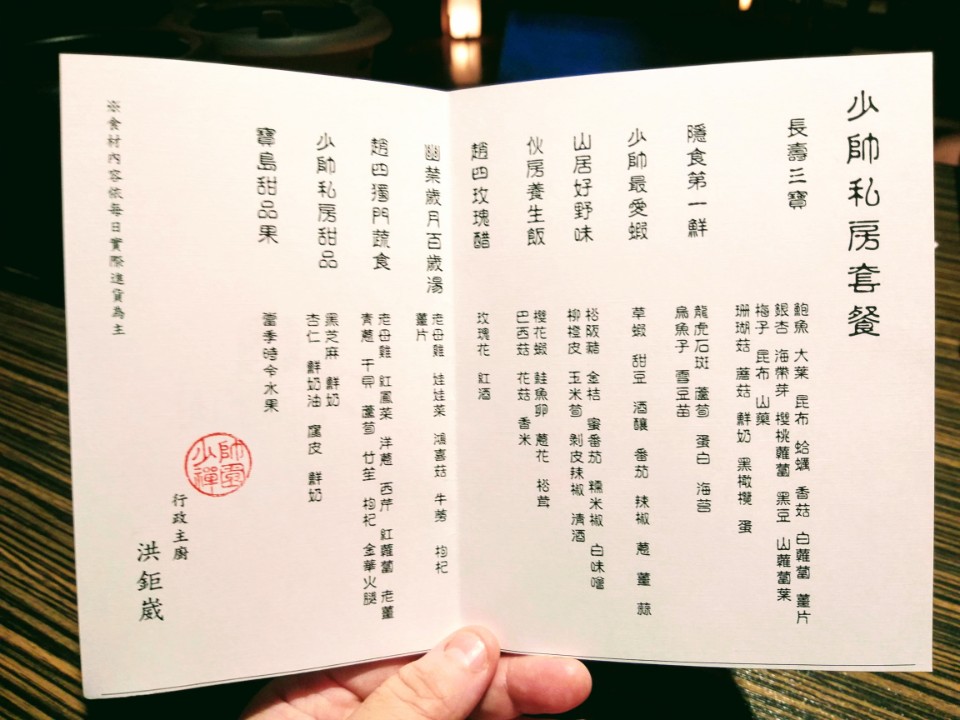 少帥私房套餐
長壽三寶
鮑魚 大葉 昆布 蛤蠣 香菇 白蘿蔔 薑片
銀杏 海帶芽 櫻桃蘿蔔 黑豆 山蘿蔔葉
梅子 昆布 山藥
珊瑚菇 蘑菇 鮮奶 黑橄欖 蛋
隱食第一鮮
龍虎石斑 蘆筍 蛋白 海苔
烏魚子 雪豆苗
少帥最愛蝦
草蝦 甜豆 酒釀 番茄 辣椒 蔥 薑 蒜
山居好野味
松阪豬 金桔 蜜番茄 糯米椒 白味噌
柳橙皮 玉米筍 剝皮辣椒 清酒
伙房養生飯
櫻花蝦 鮭魚卵 蔥花 松茸
巴西菇 花菇 香米
趙四玫瑰醋
玫瑰花 紅酒
幽禁歲月百歲湯
老母雞 娃娃菜 鴻喜菇 牛蒡 枸杞
薑片
趙四獨門蔬食
老母雞 紅鳳菜 洋蔥 西芹 紅蘿蔔 老薑
青蔥 干貝 蘆筍 竹笙 枸杞 金華火腿
少帥私房甜品
黑芝麻 鮮奶
杏仁 鮮奶油 腐皮 鮮奶
寶島甜品果
當季時令水果
少帥禪園
行政主廚
洪鉅崴
※食材內容依每日實際進貨為主